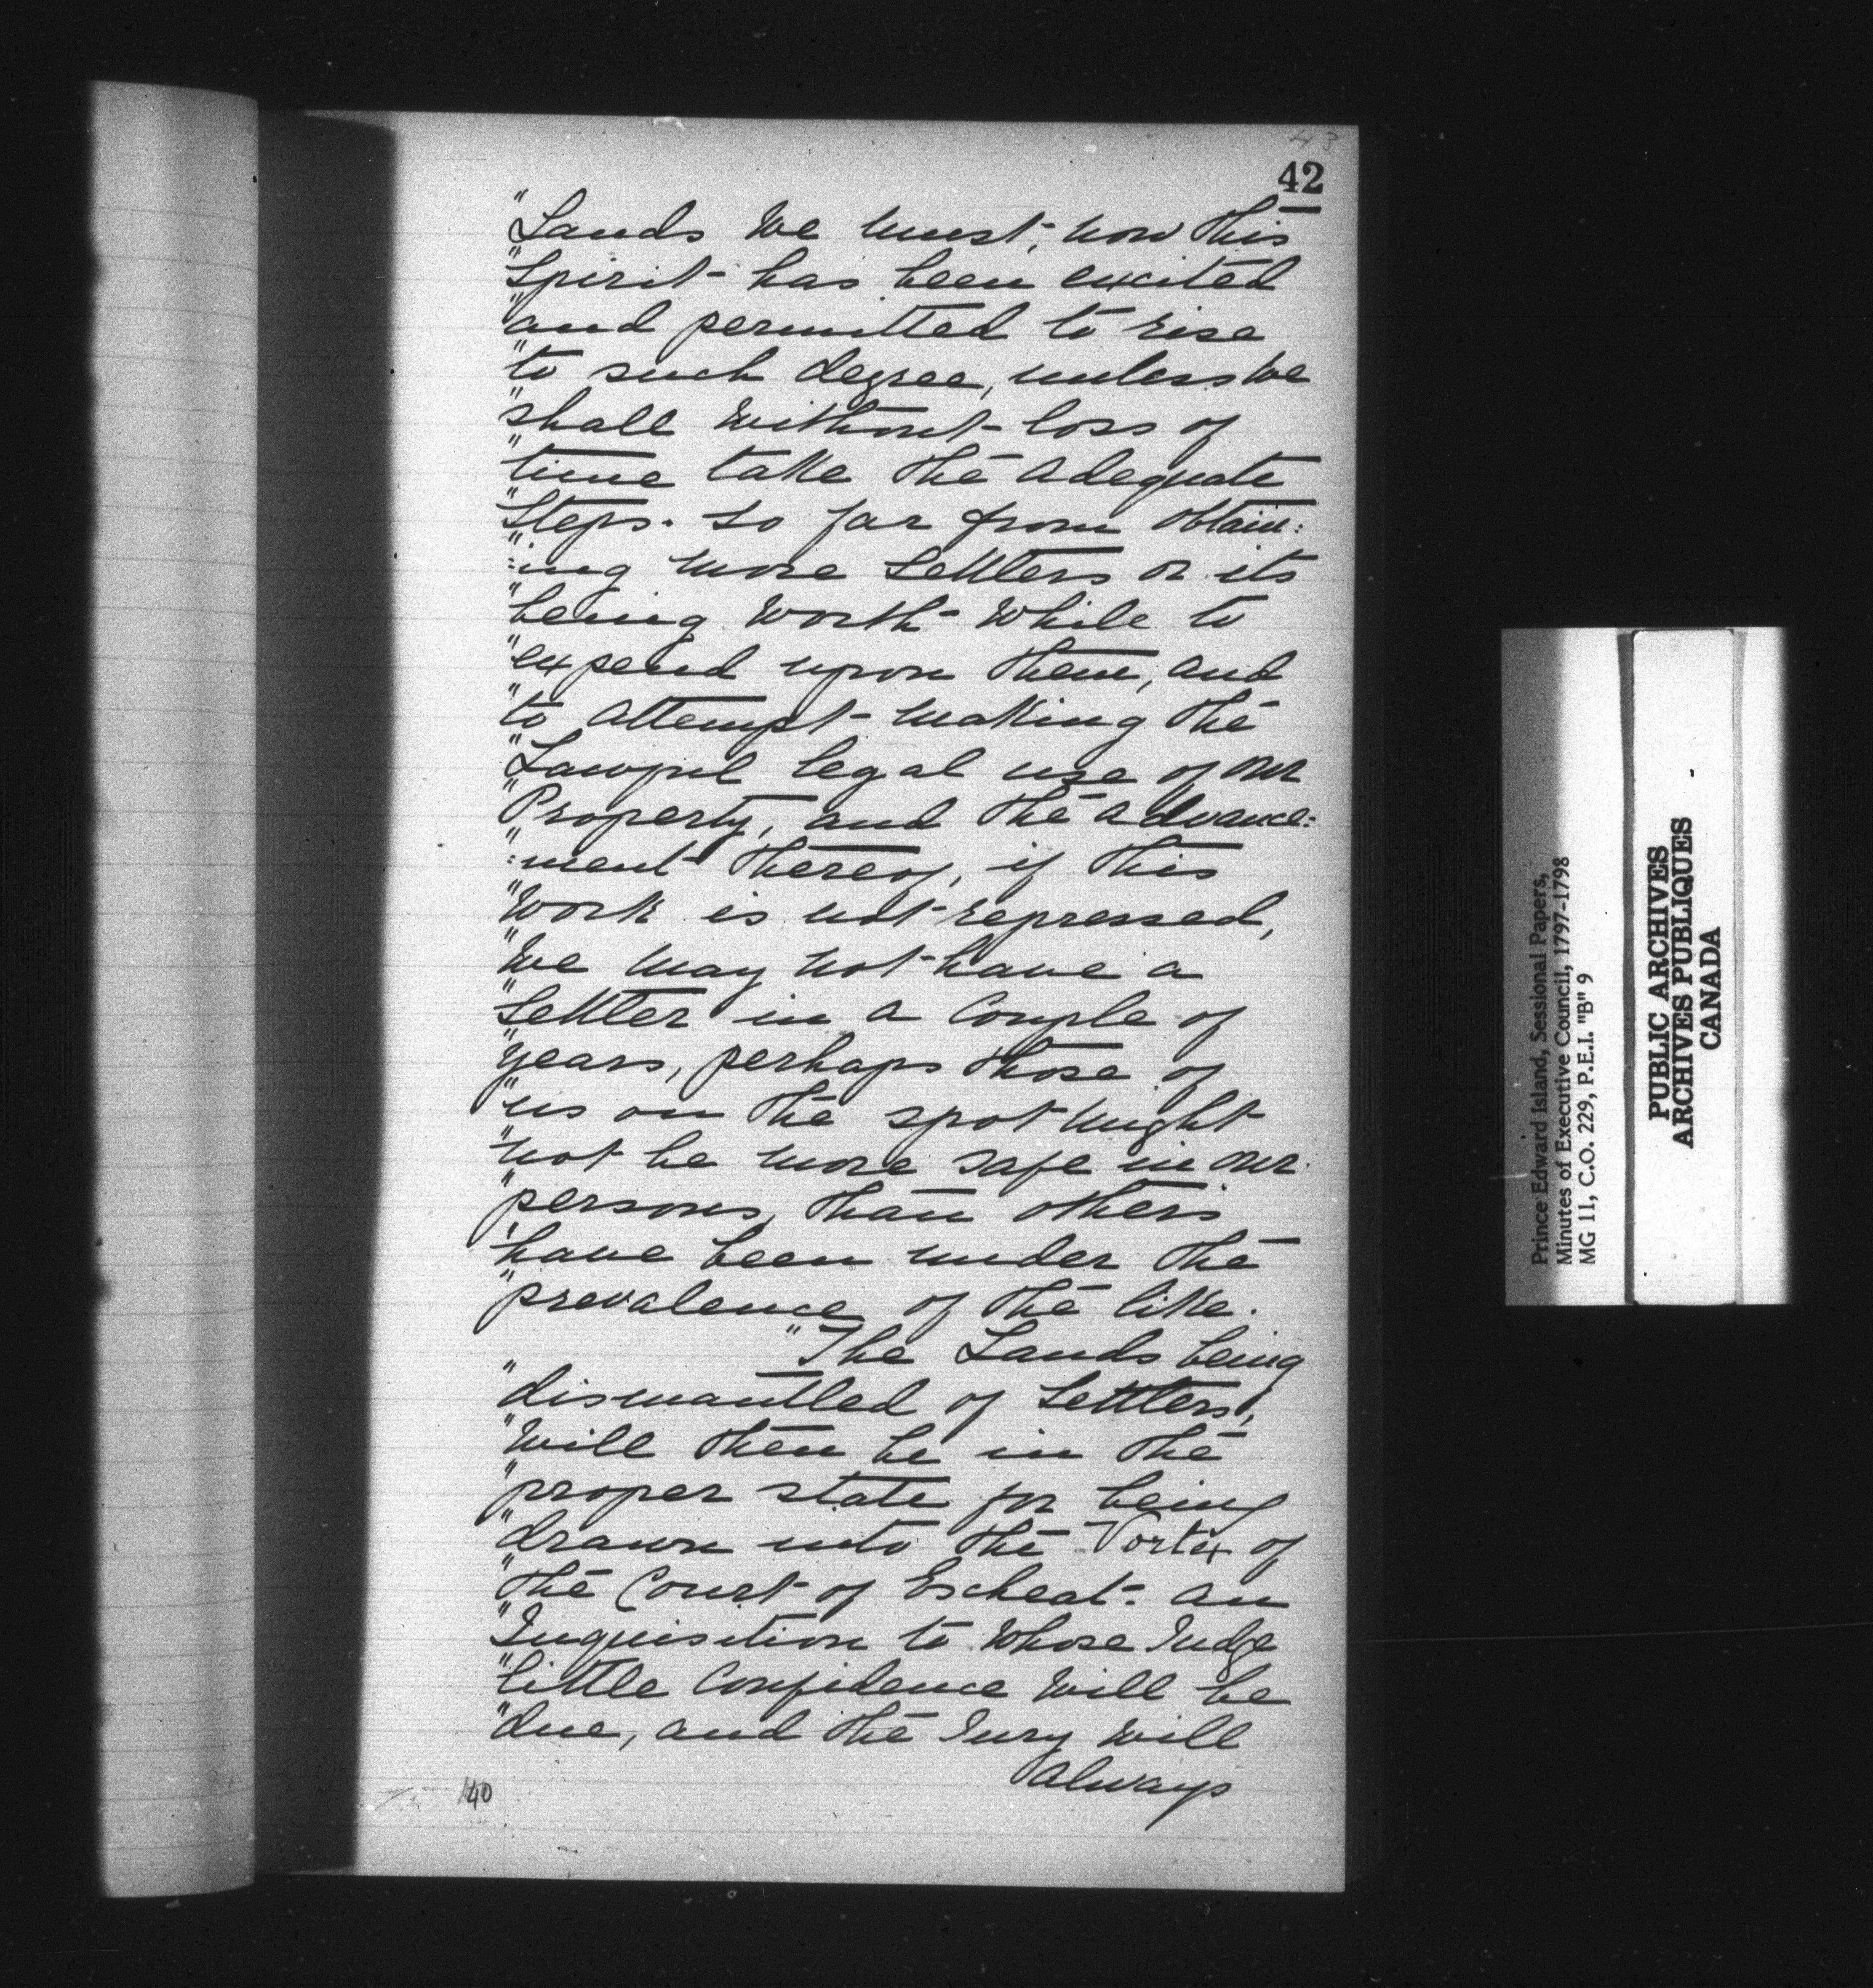 43
42
"Lands we must, now this
"Spirit has been excited
"and permitted to rise
"to such degree, unless we
"shall without loss of
"time take the adequate
"Steps. So far from obtain:
":ing more Settlers or its
"being worth while to
"expend upon them, and
"to attempt making the
"Lawful legal use of our
"Property, and the advance:
":ment thereof, if this
"Work is not repressed,
"We may not have a
"Settler in a Couple of
"years, perhaps those of
"us on the spot might
"not be more safe in our
"persons, than others
"have been under the
"prevalence of the like.
"The Lands being
"dismantled of Settlers,
"will then be in the
"proper state for being
"drawn into the Vortex of
"the Court of Escheat. an
"Inquisition to whose Judge
"little Confidence will be
"due, and the Jury will
always
140
Prince Edward Island, Sessional Papers,
Minutes of Executive Council, 1797-1798
MG 11, C.O. 229, P.E.I. "B" 9
PUBLIC ARCHIVES
ARCHIVES PUBLIQUES
CANADA